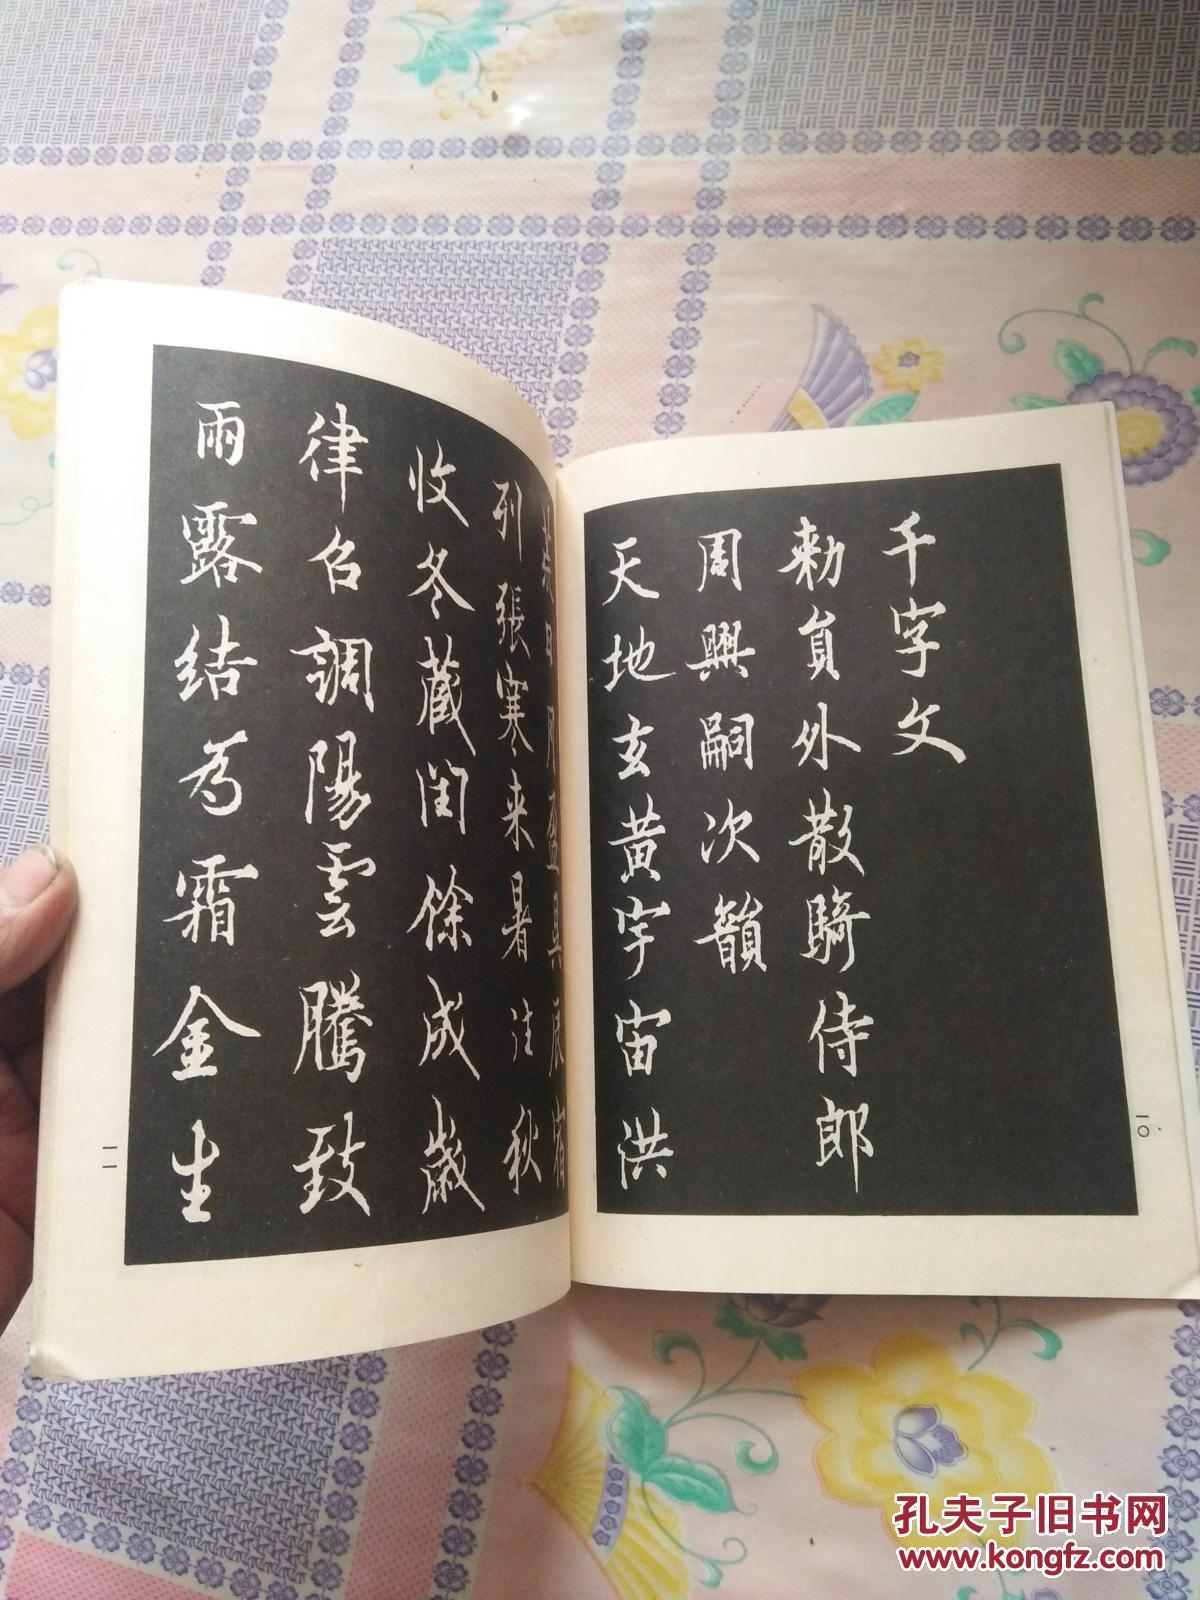 千字文
勑貟外散騎侍郎
周興嗣次韻
天地玄黄宇宙洪
荒日月盈昃辰宿
列張寒来暑往秋
收冬藏閏餘成歲
律召調陽雲騰致
雨露结為霜金生
一〇
一一
孔夫子旧书网
www.kongfz.com